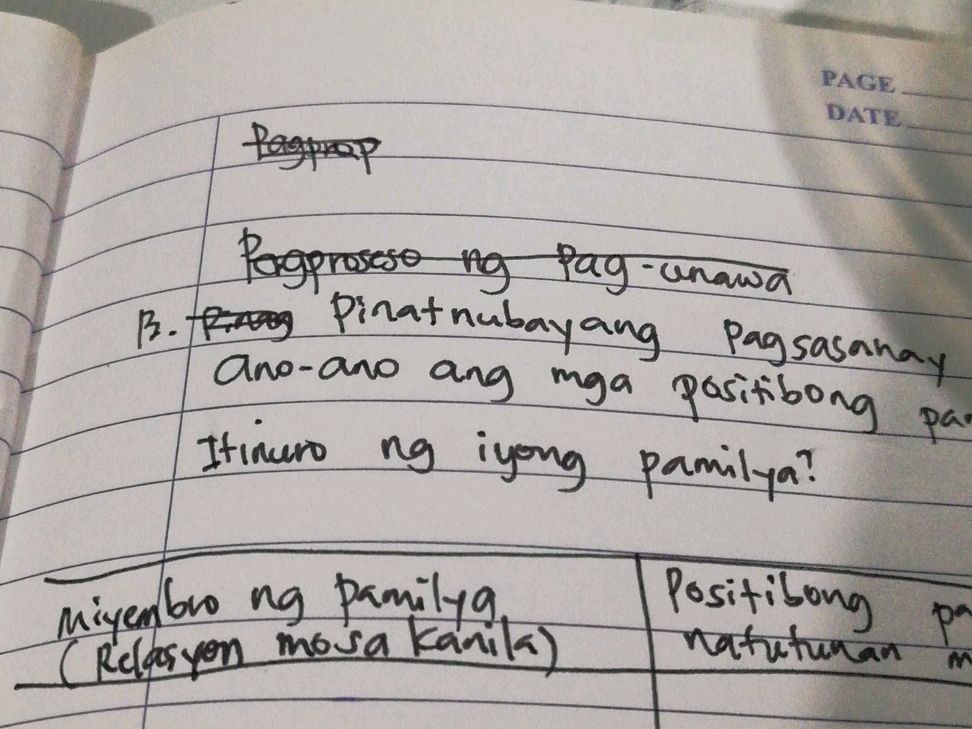 PAGE
DATE
Pagprop
Pagproseso ng Pag-unawa
B. Pinatnubayang Pagsasanay
Ano-ano ang mga positibong
Itinuro ng iyong pamilya?
Miyembro ng pamilya
(Relasyon mo sa kanila)
Positibong
natutunan